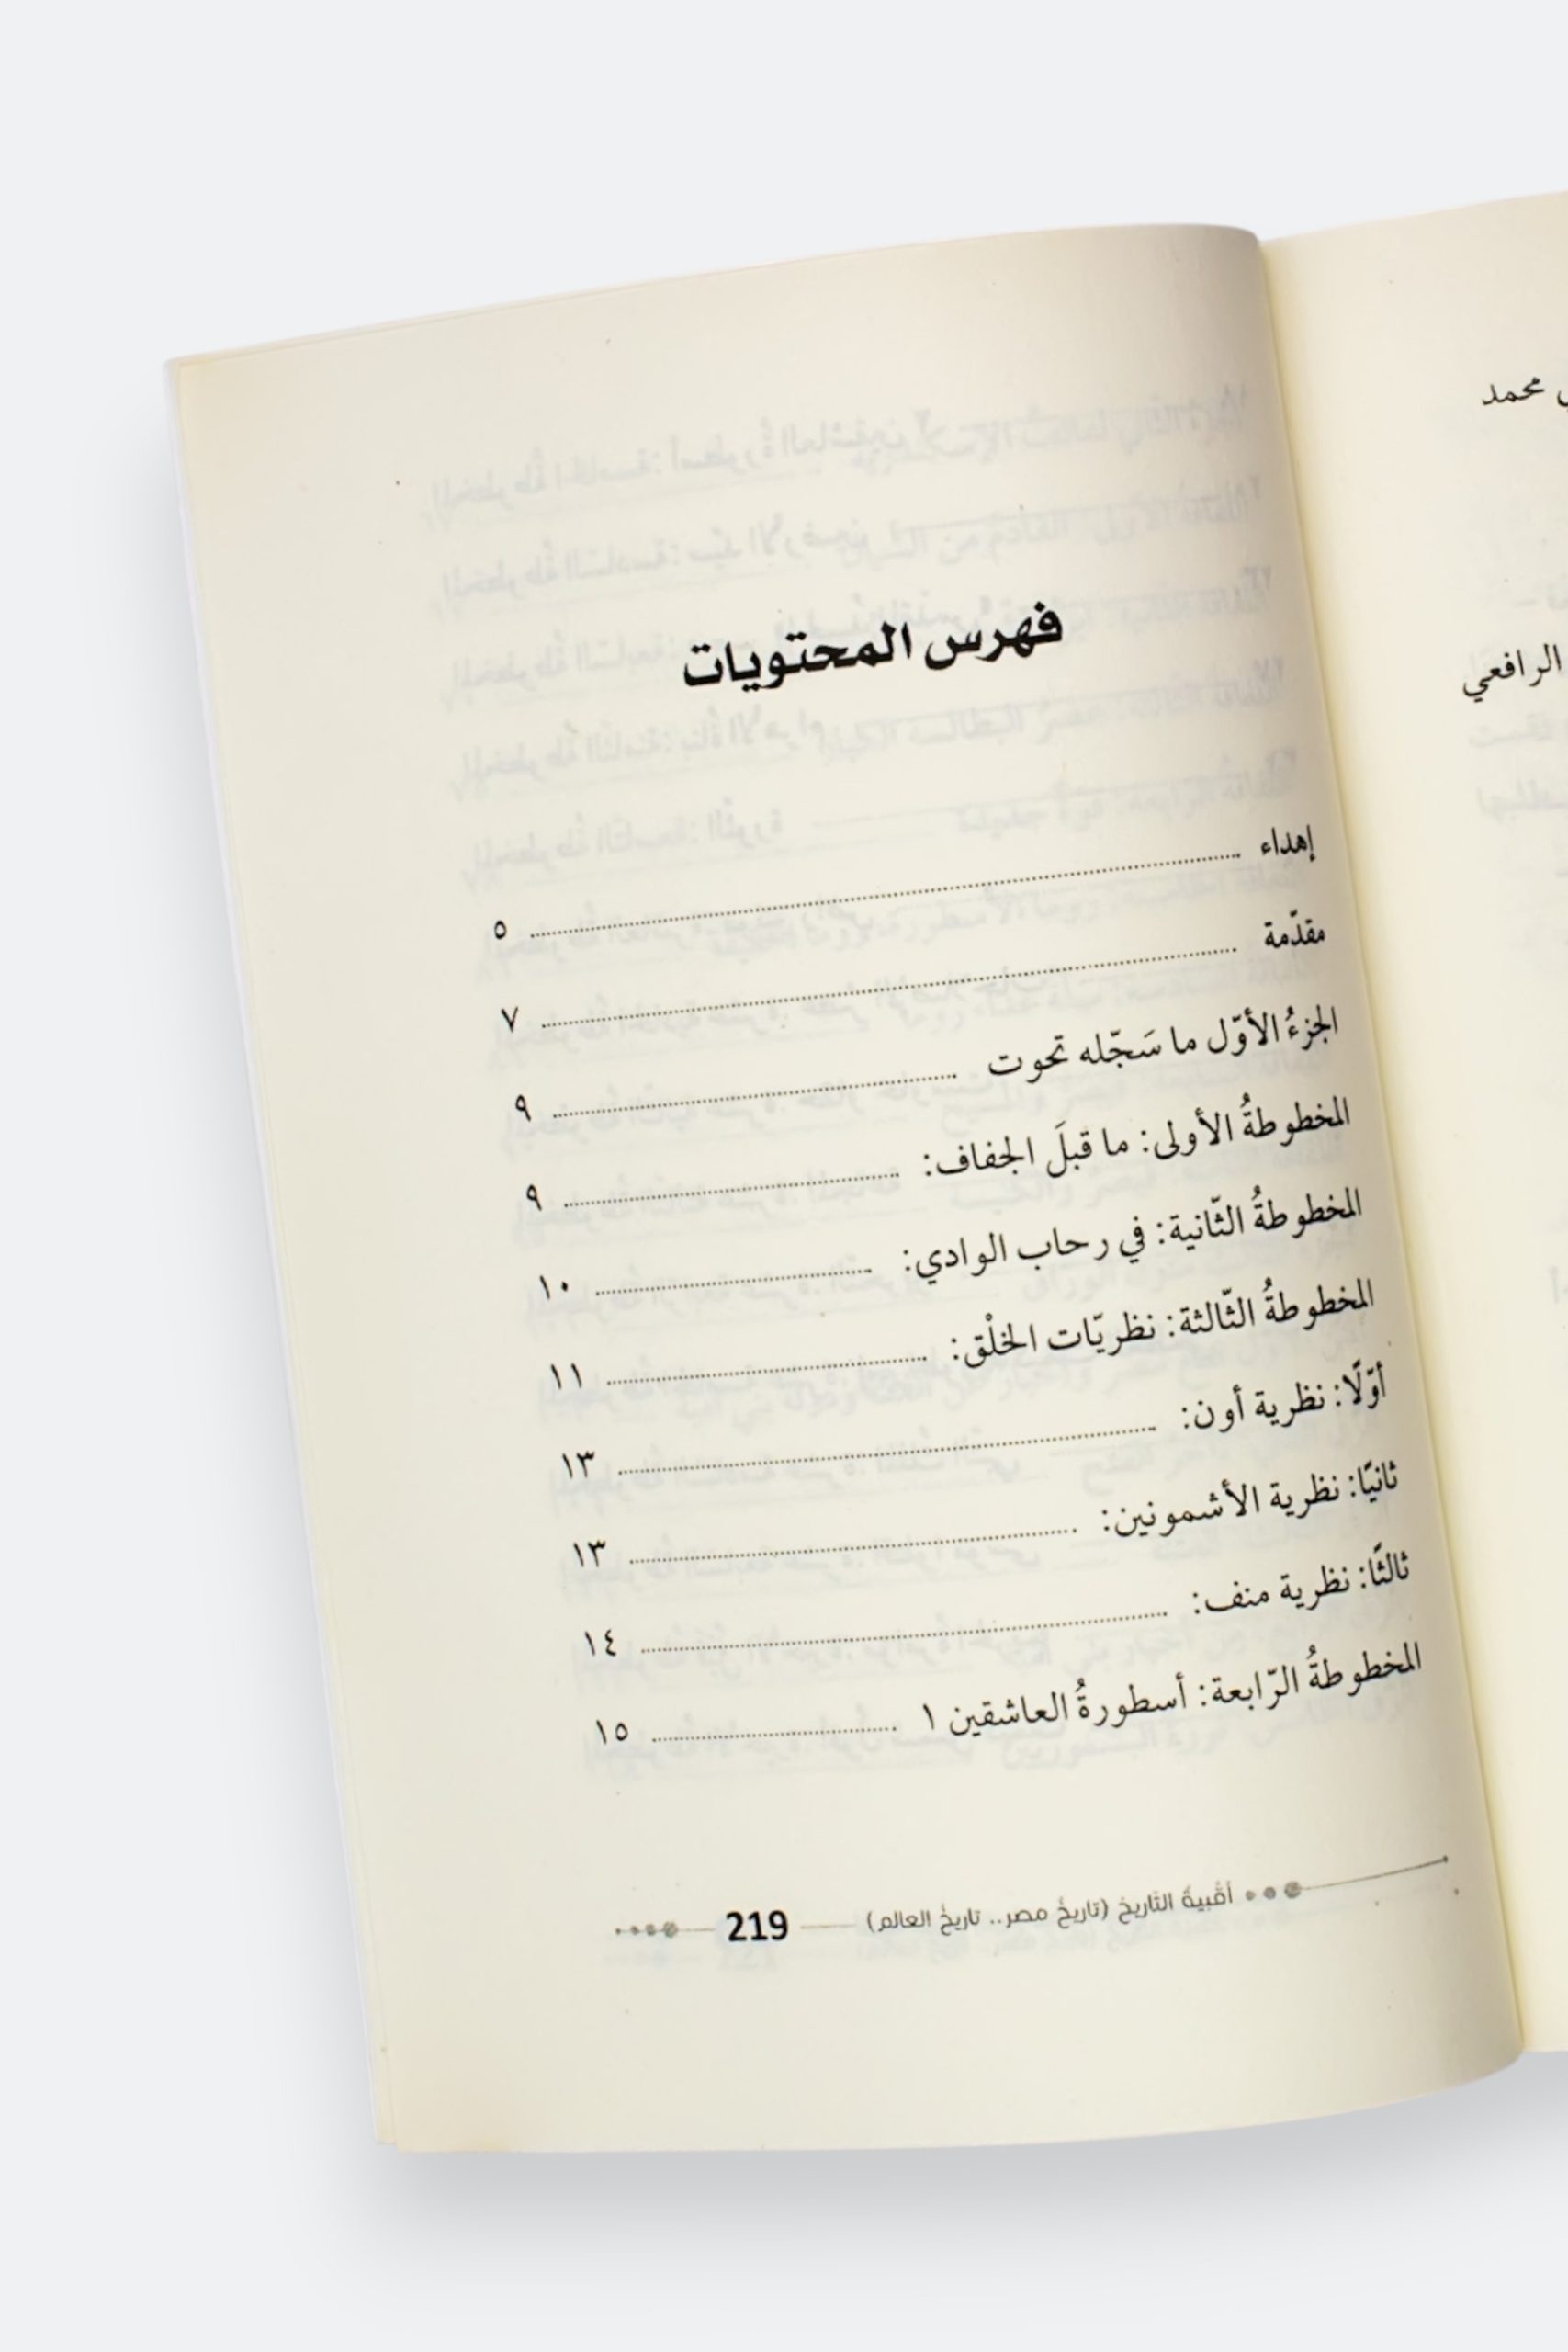 محمد
الرافعي
فهرس المحتويات
إهداء ........ ٥
مقدّمة ........ ٧
الجزءُ الأوّل ما سَجّله تحوت ........ ٩
المخطوطةُ الأولى: ما قبلَ الجفاف: ........ ٩
المخطوطةُ الثّانية: في رحاب الوادي: ........ ١٠
المخطوطةُ الثّالثة: نظريّات الخلْق: ........ ١١
أوّلًا: نظرية أون: ........ ١٣
ثانيًا: نظرية الأشمونين: ........ ١٣
ثالثًا: نظرية منف: ........ ١٤
المخطوطةُ الرّابعة: أسطورةُ العاشقين ١ ........ ١٥
أقبية التّاريخ (تاريخُ مصر.. تاريخُ العالم) 219